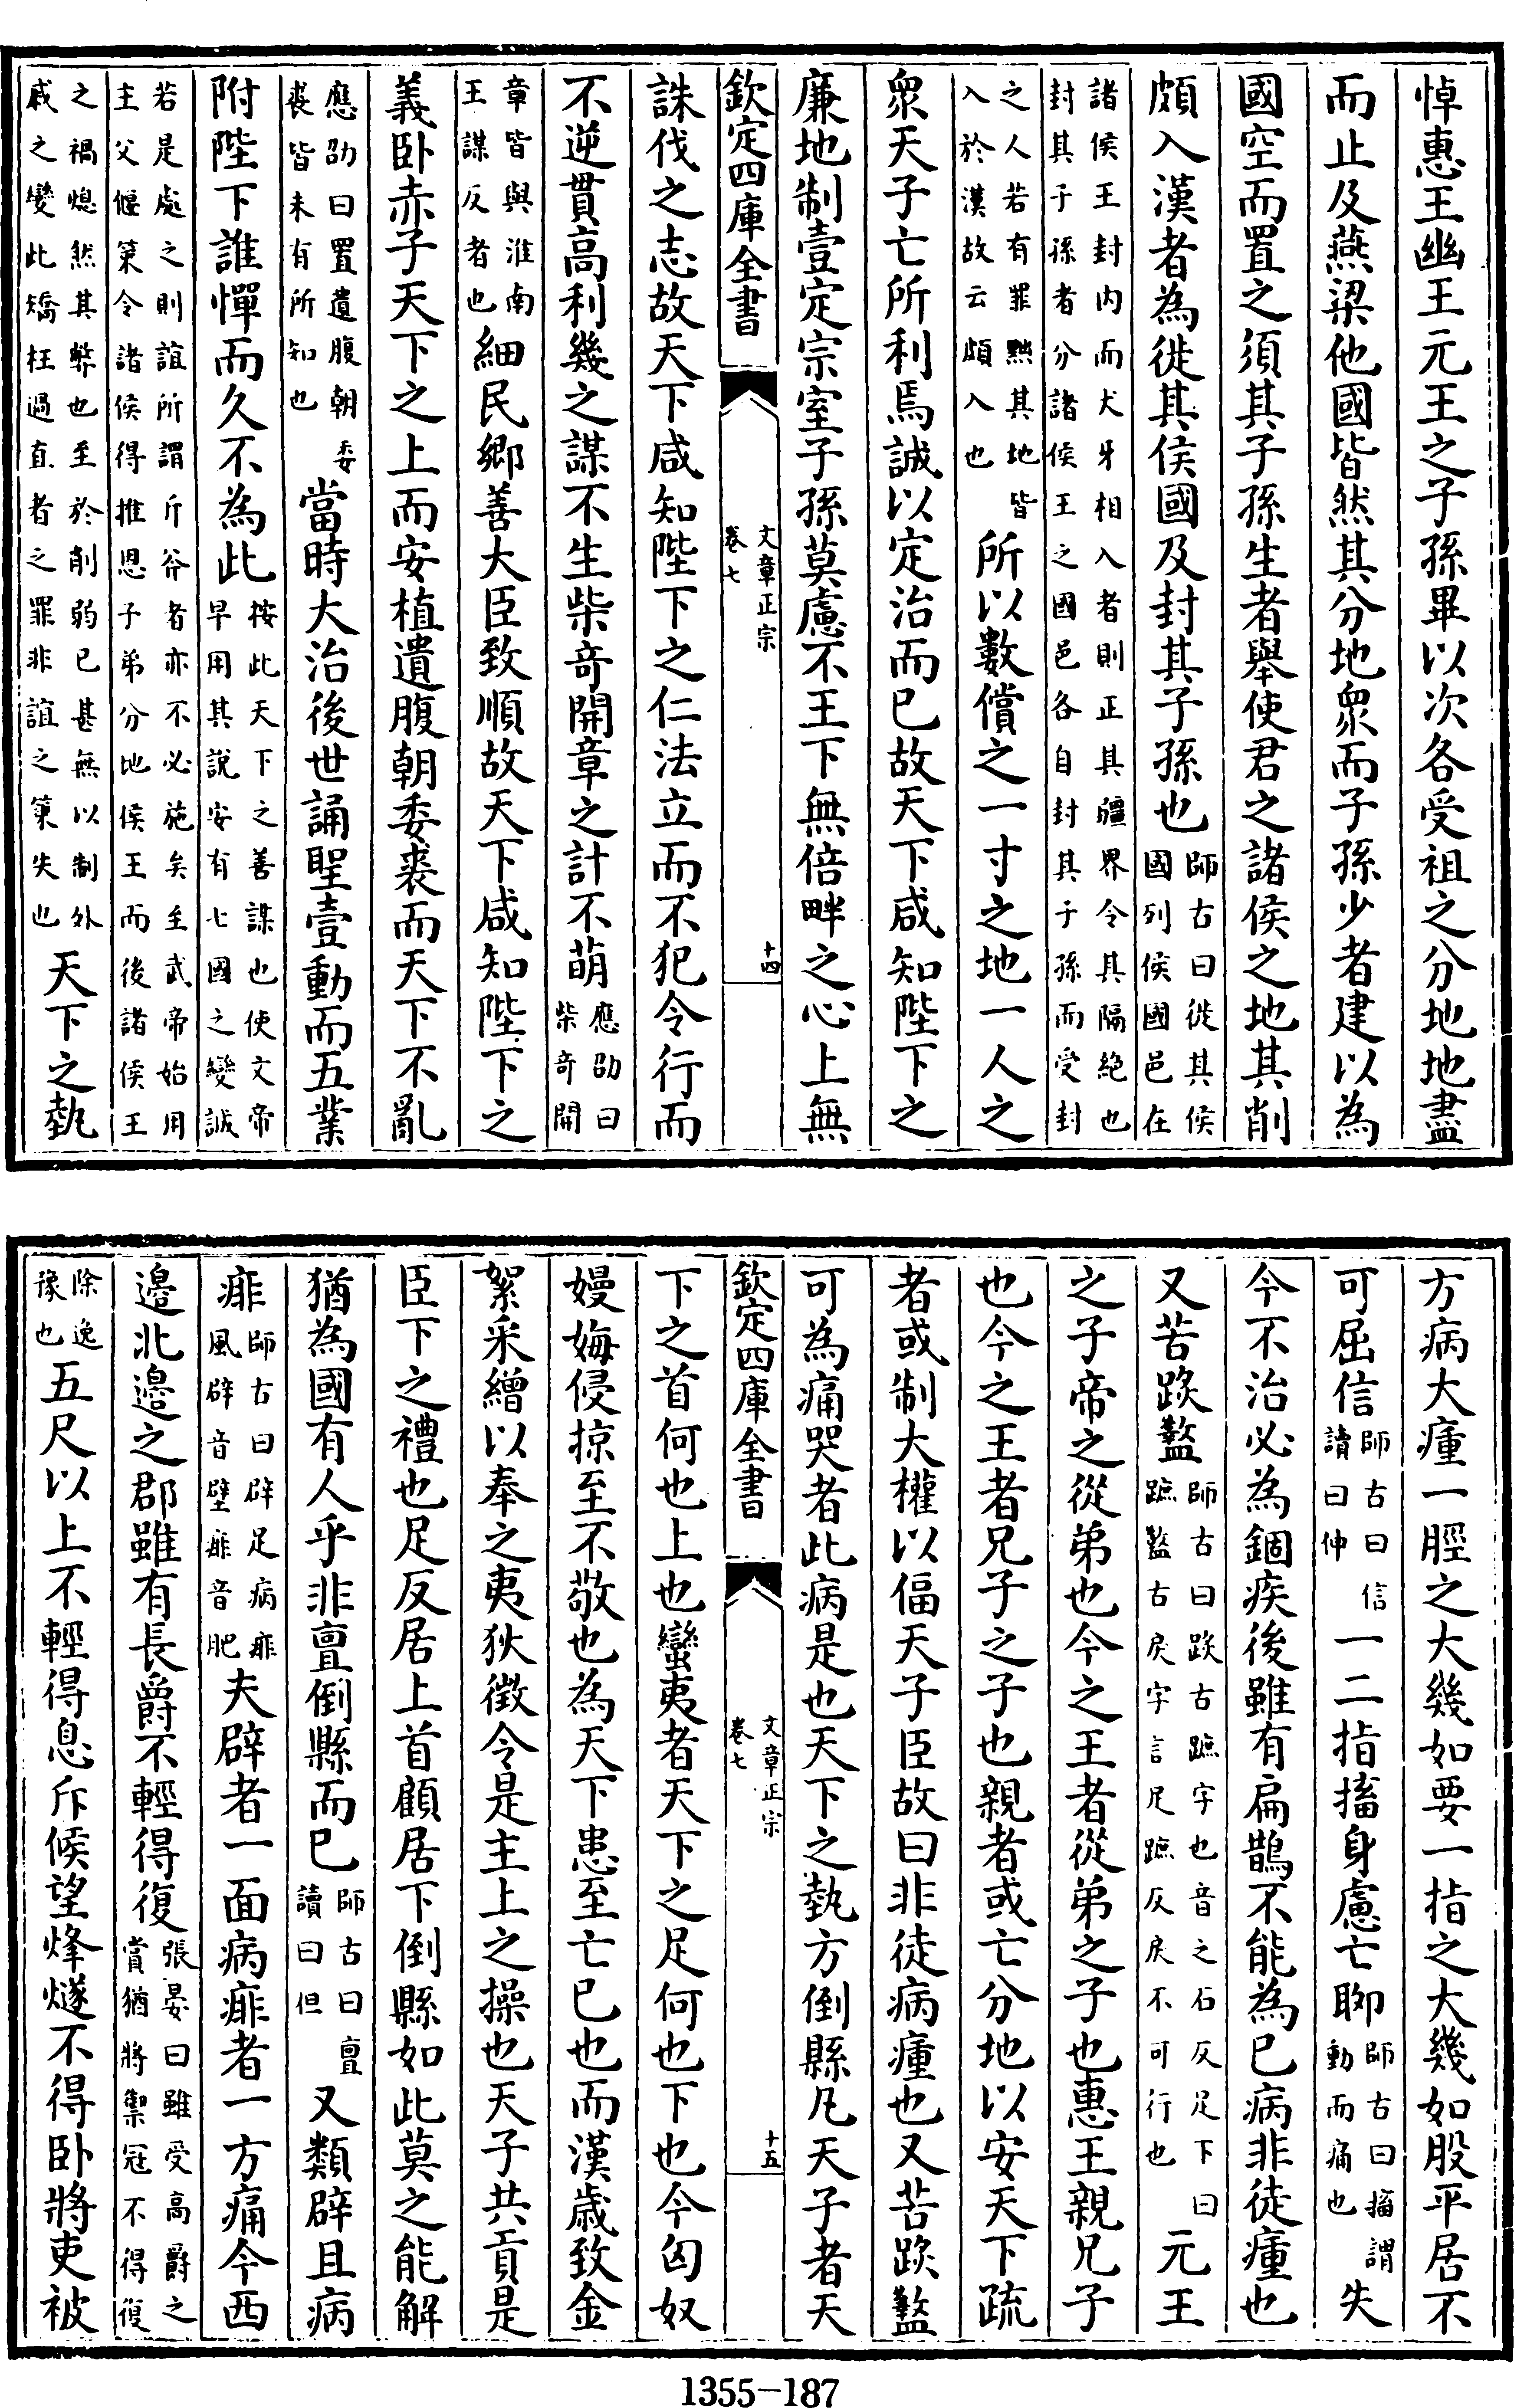 悼惠王幽王元王之子孫畢以次各受祖之分地地盡
而止及燕梁他國皆然其分地衆而子孫少者建以為
國空而置之須其子孫生者舉使君之諸侯之地其削
頗入漢者為徙其侯國及封其子孫也師古曰徙其侯國列侯國邑在
諸侯王封内而犬牙相入者則正其疆界令其隔絶也封其子孫者分諸侯王之國邑各自封其子孫而受封
之人若有罪黜其地皆入於漢故云頗入也所以數償之一寸之地一人之
衆天子亡所利焉誠以定治而已故天下咸知陛下之
廉地制壹定宗室子孫莫慮不王下無倍畔之心上無
欽定四庫全書 文章正宗 卷七 十四
誅伐之志故天下咸知陛下之仁法立而不犯令行而
不逆貫高利幾之謀不生柴竒開章之計不萌應劭曰柴竒開
章皆與淮南王謀反者也細民鄉善大臣致順故天下咸知陛下之
義卧赤子天下之上而安植遺腹朝委裘而天下不亂
應劭曰置遺腹朝委裘皆未有所知也當時大治後世誦聖壹動而五業
附陛下誰憚而久不為此按此天下之善謀也使文帝早用其説安有七國之變誠
若是處之則誼所謂斤斧者亦不必施矣至武帝始用主父偃策令諸侯得推恩子弟分地侯王而後諸侯王
之禍熄然其弊也至於削弱已甚無以制外戚之變此矯枉過直者之罪非誼之策失也天下之埶
方病大瘇一脛之大幾如要一指之大幾如股平居不
可屈信師古曰信讀曰伸一二指搐身慮亡聊師古曰搐謂動而痛也失
今不治必為錮疾後雖有扁鵲不能為已病非徒瘇也
又苦䟦盭師古曰䟦古蹠字也音之石反足下曰蹠盭古戾字言足蹠反戾不可行也元王
之子帝之從弟也今之王者從弟之子也惠王親兄子
也今之王者兄子之子也親者或亡分地以安天下疏
者或制大權以偪天子臣故曰非徒病瘇也又苦䟦盭
可為痛哭者此病是也天下之埶方倒縣凡天子者天
欽定四庫全書 文章正宗 卷七 十五
下之首何也上也蠻夷者天下之足何也下也今匈奴
嫚娒侵掠至不敬也為天下患至亡已也而漢歲致金
絮采繒以奉之夷狄徵令是主上之操也天子共貢是
臣下之禮也足反居上首顧居下倒縣如此莫之能解
猶為國有人乎非亶倒縣而已師古曰亶讀曰但又類辟且病
痱師古曰辟足病痱風辟音壁痱音肥夫辟者一面病痱者一方痛今西
邊北邊之郡雖有長爵不輕得復張晏曰雖受高爵之賞猶將禦冦不得復
除逸豫也五尺以上不輕得息斥候望烽燧不得卧將吏被
1355-187